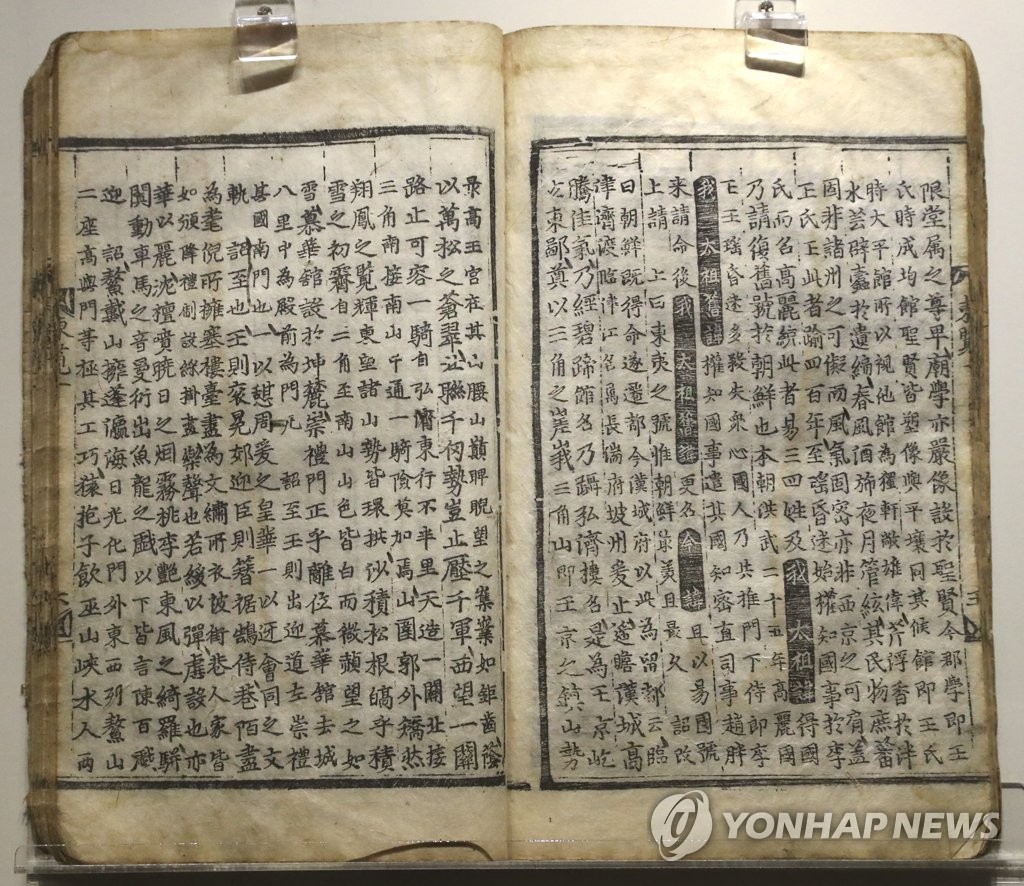 限堂属之尊卑廟學亦嚴像設於聖賢今郡學即王
氏時成均館聖賢皆塑像與平壤同其候館即王氏
時大平館所以視他館為禮軒敞雄偉芹浮香於泮
水芸辟蠹於遺編春風酒斾夜月管絃其民物庶蕃
固非諸州之可儗而風氣固密亦非西京之可肩蓋
王氏王此者踰四百年至瑤昏迷始權知國事於李
氏而名高麗統此者易三四姓及我太祖諱得國
乃請復舊號於朝鮮也本朝洪武二十五年高麗國
王王瑤昏迷多殺失衆心國人乃共推門下侍郎李
我太祖舊諱權知國事遣其國知密直司事趙胖
來請命後我太祖舊諱更名今諱且以易國號
上請 上曰東夷之號惟朝鮮最美且最久 詔改
曰朝鮮既得命遂遷都今漢城府以此為留都云臨
津濟渡臨津江名屬長湍府坡州爰止遙瞻漢城高
騰佳氣乃經碧蹄館名乃躋弘濟樓名是為王京屹
立東鄙奠以三角之嵳峩三角山即王京之鎮山勢
最高王宮在其山腰山巔睥睨望之櫐櫐如鉅齒蔭
以萬松之蒼翠北聯千仞勢豈止壓千軍西望一關
路止可容一騎自弘濟東行不半里天造一關北接
三角南接南山中通一騎險莫加焉山圍郭外矯然
翔鳳之覽輝東望諸山勢皆環拱沙積松根皜乎積
雪之初霽自三角至南山山色皆白而微赬望之如
雪慕華館設於坤麓崇禮門正乎離位慕華館去城
八里中為殿前為門凡 詔至王則出迎道左崇禮
其國南門也一以憇周爰之皇華一以迓會同之文
軌 詔至也王則衮冕郊迎臣則簪裾鵠侍巷陌盡
為耄倪所擁塞樓臺盡為文繡所衣被街巷人家皆
如頒降禮制設綵掛畫樂聲也若緩以彈虛設也亦
華以麗沈檀噴曉日之烟霧桃李艷東風之綺羅駢
闐動車馬之音曼衍出魚龍之戲以下皆言陳百戲
迎 詔鰲戴山擁蓬瀛海日光化門外東西列鰲山
二座高與門等極其工巧猿抱子飲巫山峽水人兩
YONHAP NEWS